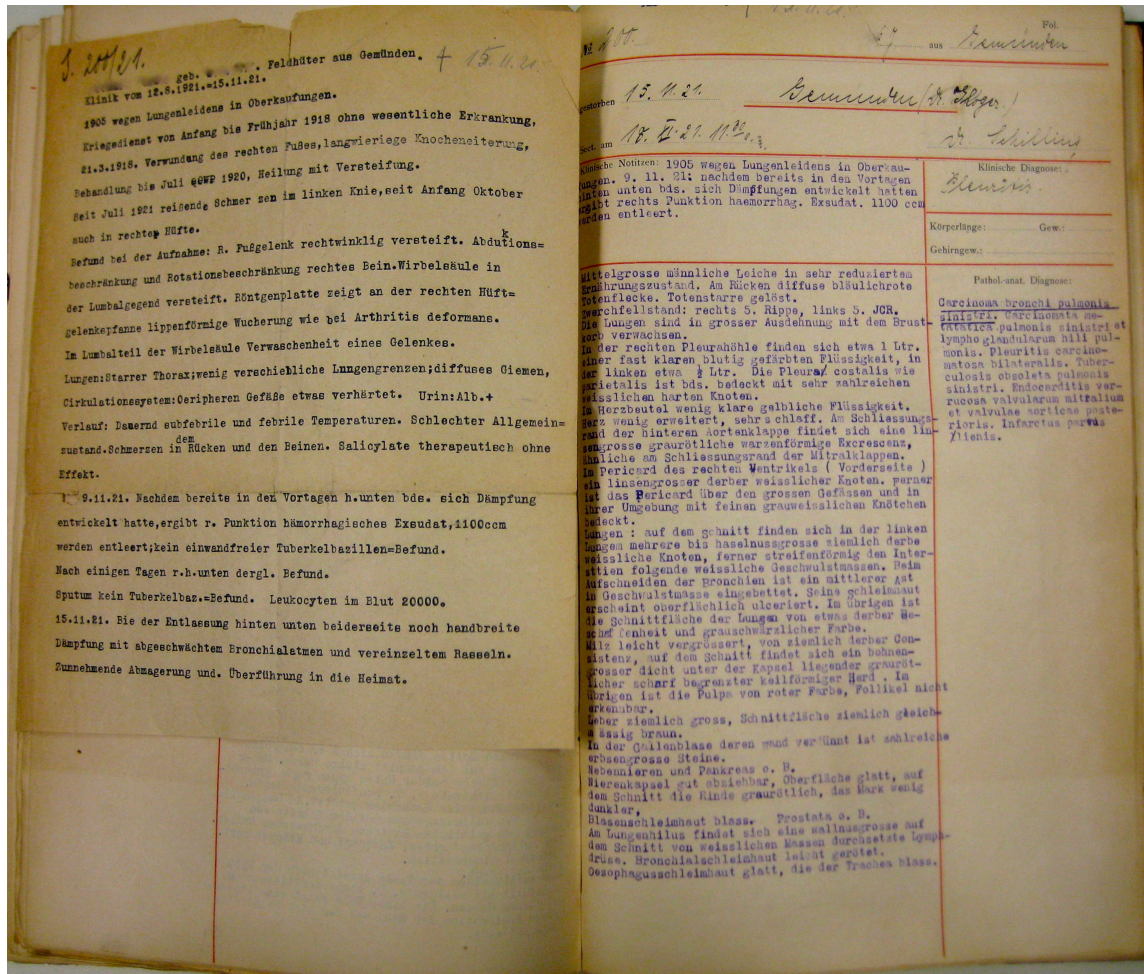 S. 200/21.
geb. Feldhüter aus Gemünden. † 15.11.21.
Klinik vom 12.8.1921.=15.11.21.
1905 wegen Lungenleidens in Oberkaufungen.
Kriegsdienst von Anfang bis Frühjahr 1918 ohne wesentliche Erkrankung,
21.3.1918. Verwundung des rechten Fußes,langwieriege Knocheneiterung,
Behandlung bis Juli 1920, Heilung mit Versteifung.
Seit Juli 1921 reißende Schmer zen im linken Knie,seit Anfang Oktober
auch in rechter Hüfte.
Befund bei der Aufnahme: R. Fußgelenk rechtwinklig versteift. Abduktions=
beschränkung und Rotationsbeschränkung rechtes Bein.Wirbelsäule in
der Lumbalgegend versteift. Röntgenplatte zeigt an der rechten Hüft=
gelenkepfanne lippenförmige Wucherung wie bei Arthritis deformans.
Im Lumbalteil der Wirbelsäule Verwaschenheit eines Gelenkes.
Lungen:Starrer Thorax;wenig verschiebliche Lungengrenzen;diffuses Giemen,
Cirkulationssystem:Oeripheren Gefäße etwas verhärtet. Urin:Alb.+
Verlauf: Dauernd subfebrile und febrile Temperaturen. Schlechter Allgemein=
zustand.Schmerzen in dem Rücken und den Beinen. Salicylate therapeutisch ohne
Effekt.
9.11.21. Nachdem bereits in den Vortagen h.unten bds. sich Dämpfung
entwickelt hatte,ergibt r. Punktion hämorrhagisches Exsudat,1100ccm
werden entleert;kein einwandfreier Tuberkelbazillen=Befund.
Nach einigen Tagen r.h.unten dergl. Befund.
Sputum kein Tuberkelbaz.=Befund. Leukocyten im Blut 20000.
15.11.21. Bie der Entlassung hinten unten beiderseits noch handbreite
Dämpfung mit abgeschwächtem Bronchialatmen und vereinzeltem Rasseln.
Zunnehmende Abmagerung und. Überführung in die Heimat.
Fol.
No. 200. aus Gemünden
gestorben 15.11.21. Gemünden
Sect. am 17.XI.21.
Klinische Notitzen: 1905 wegen Lungenleidens in Oberkau-
fungen. 9. 11. 21: nachdem bereits in den Vortagen
hinten unten bds. sich Dämpfungen entwickelt hatten
ergibt rechts Punktion haemorrhag. Exsudat. 1100 ccm
werden entleert.
Klinische Diagnose:
Pleuritis
Körperlänge: Gew.:
Gehirngew.:
Mittelgrosse männliche Leiche in sehr reduziertem
Ernährungszustand. Am Rücken diffuse bläulichrote
Totenflecke. Totenstarre gelöst.
Zwerchfellstand: rechts 5. Rippe, links 5. JCR.
Die Lungen sind in grosser Ausdehnung mit dem Brust-
korb verwachsen.
In der rechten Pleurahöhle finden sich etwa 1 Ltr.
einer fast klaren blutig gefärbten Flüssigkeit, in
der linken etwa ½ Ltr. Die Pleura costalis wie
parietalis ist bds. bedeckt mit sehr zahlreichen
weisslichen harten Knoten.
Im Herzbeutel wenig klare gelbliche Flüssigkeit.
Herz wenig erweitert, sehr schlaff. Am Schliessungs-
rand der hinteren Aortenklappe findet sich eine lin-
sengrosse graurötliche warzenförmige Excrescenz,
ähnliche am Schliessungsrand der Mitralklappen.
Im Pericard des rechten Ventrikels ( Vorderseite )
ein linsengrosser derber weisslicher Knoten. Ferner
ist das Pericard über den grossen Gefässen und in
ihrer Umgebung mit feinen grauweisslichen Knötchen
bedeckt.
Lungen : auf dem Schnitt finden sich in der linken
Lungem mehrere bis haselnussgrosse ziemlich derbe
weissliche Knoten, ferner streifenförmig den Inter-
sttien folgende weissliche Geschwulstmassen. Beim
Aufschneiden der Bronchien ist ein mittlerer Ast
in Geschwulstmasse eingebettet. Seine Schleimhaut
erscheint oberflächlich ulceriert. Im übrigen ist
die Schnittfläche der Lungen von etwas derber Be-
schaffenheit und grauschwärzlicher Farbe.
Milz leicht vergrössert, von ziemlich derber Con-
sistenz, auf dem Schnitt findet sich ein bohnen-
grosser dicht unter der Kapsel liegender grauröt-
licher scharf begrenzter keilförmiger Herd . Im
übrigen ist die Pulpa von roter Farbe, Follikel nicht
erkennbar.
Leber ziemlich gross, Schnittfläche ziemlich gleich-
mässig braun.
In der Gallenblase deren Wand verdünnt ist zahlreiche
erbsengrosse Steine.
Nebennieren und Pankreas o. B.
Nierenkapsel gut abziehbar, Oberfläche glatt, auf
dem Schnitt die Rinde graurötlich, das Mark wenig
dunkler,
Blasenschleimhaut blass. Prostata o. B.
Am Lungenhilus findet sich eine wallnusgrosse auf
dem Schnitt von weisslichen Massen durchsetzte Lymph-
drüse. Bronchialschleimhaut leicht gerötet.
Oesophagusschleimhaut glatt, die der Trachea blass.
Pathol.-anat. Diagnose:
Carcinoma bronchi pulmonis
sinistri. Carcinomata me-
tatatica pulmonis sinistri et
lympho glandularum hili pul-
monis. Pleuritis carcino-
matosa bilateralis. Tuber-
culosis obsoleta pulmonis
sinistri. Endocarditis ver-
rucosa valvularum mitralium
et valvulae aorticae poste-
rioris. Infarctus parvus
lienis.